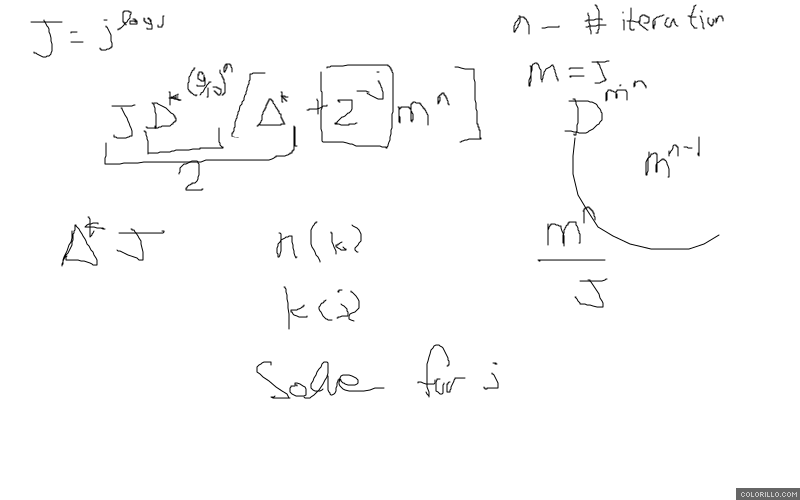 J = j^logj
n - # iteration
m = J
J D^k^(9/10)^n [Δ^k + 2^-j m^n]
2
D^m^n
m^n-1
m^n
J
Δ^k J
n(k)
k(j)
Solve for j
COLORILLO.COM